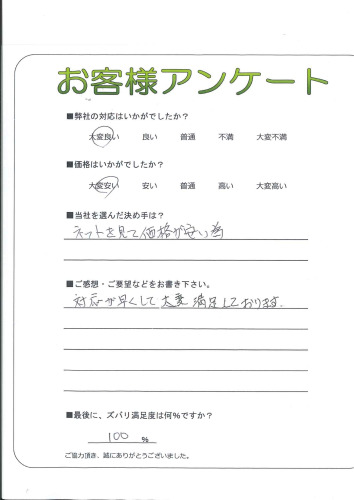 お客様アンケート
■弊社の対応はいかがでしたか？
大変良い 良い 普通 不満 大変不満
■価格はいかがでしたか？
大変安い 安い 普通 高い 大変高い
■当社を選んだ決め手は？
ネットを見て価格が安い為
■ご感想・ご要望などをお書き下さい。
対応が早くして大変満足しております。
■最後に、ズバリ満足度は何%ですか？
100 %
ご協力頂き、誠にありがとうございました。